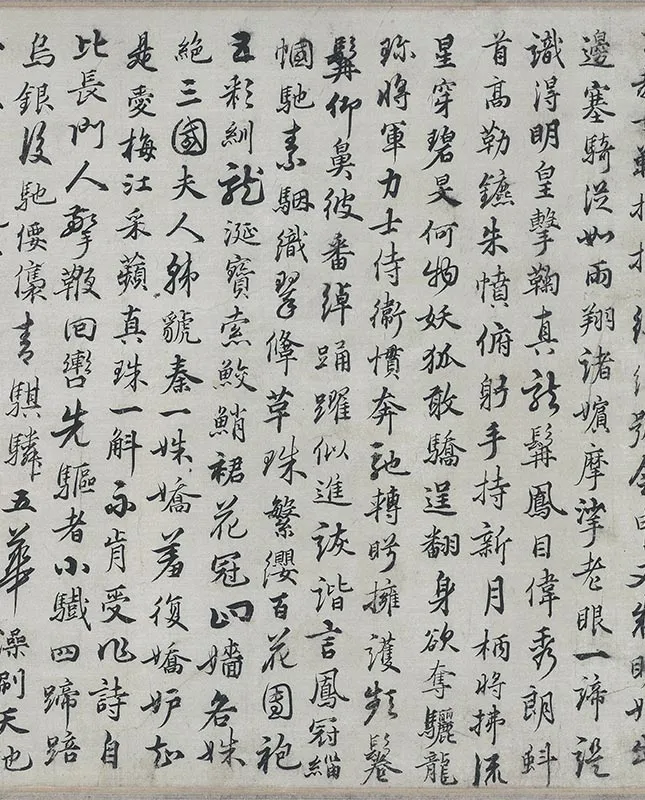 邊塞騎從如雨翔諸嬪摩挲老眼一諦諟
識得明皇擊鞠真龍髯鳳目偉秀朗蚪
首高勒鑣朱幩俯躬手持新月柄將拂流
星穿碧旻何物妖狐敢驕逞翻身欲奪驪龍
珎將軍力士侍衛慣奔馳轉眄擁護頻鬈
髯仰鼻彼番綽踊躍似進詼諧言鳳冠緇
幗馳素駰織翠鞗革珠繁纓百花團袍
五彩紃龍涎寶索鮫鮹裙花冠曰嬙名姝
絕三國夫人韓虢秦一姝嬌羞復嬌妒知
是愛梅江采蘋真珠一斛不肯受作詩自
比長門人擎鞭回轡先驅者小驖四蹄踣
烏銀後馳儓青騏驎五華澡刷天也